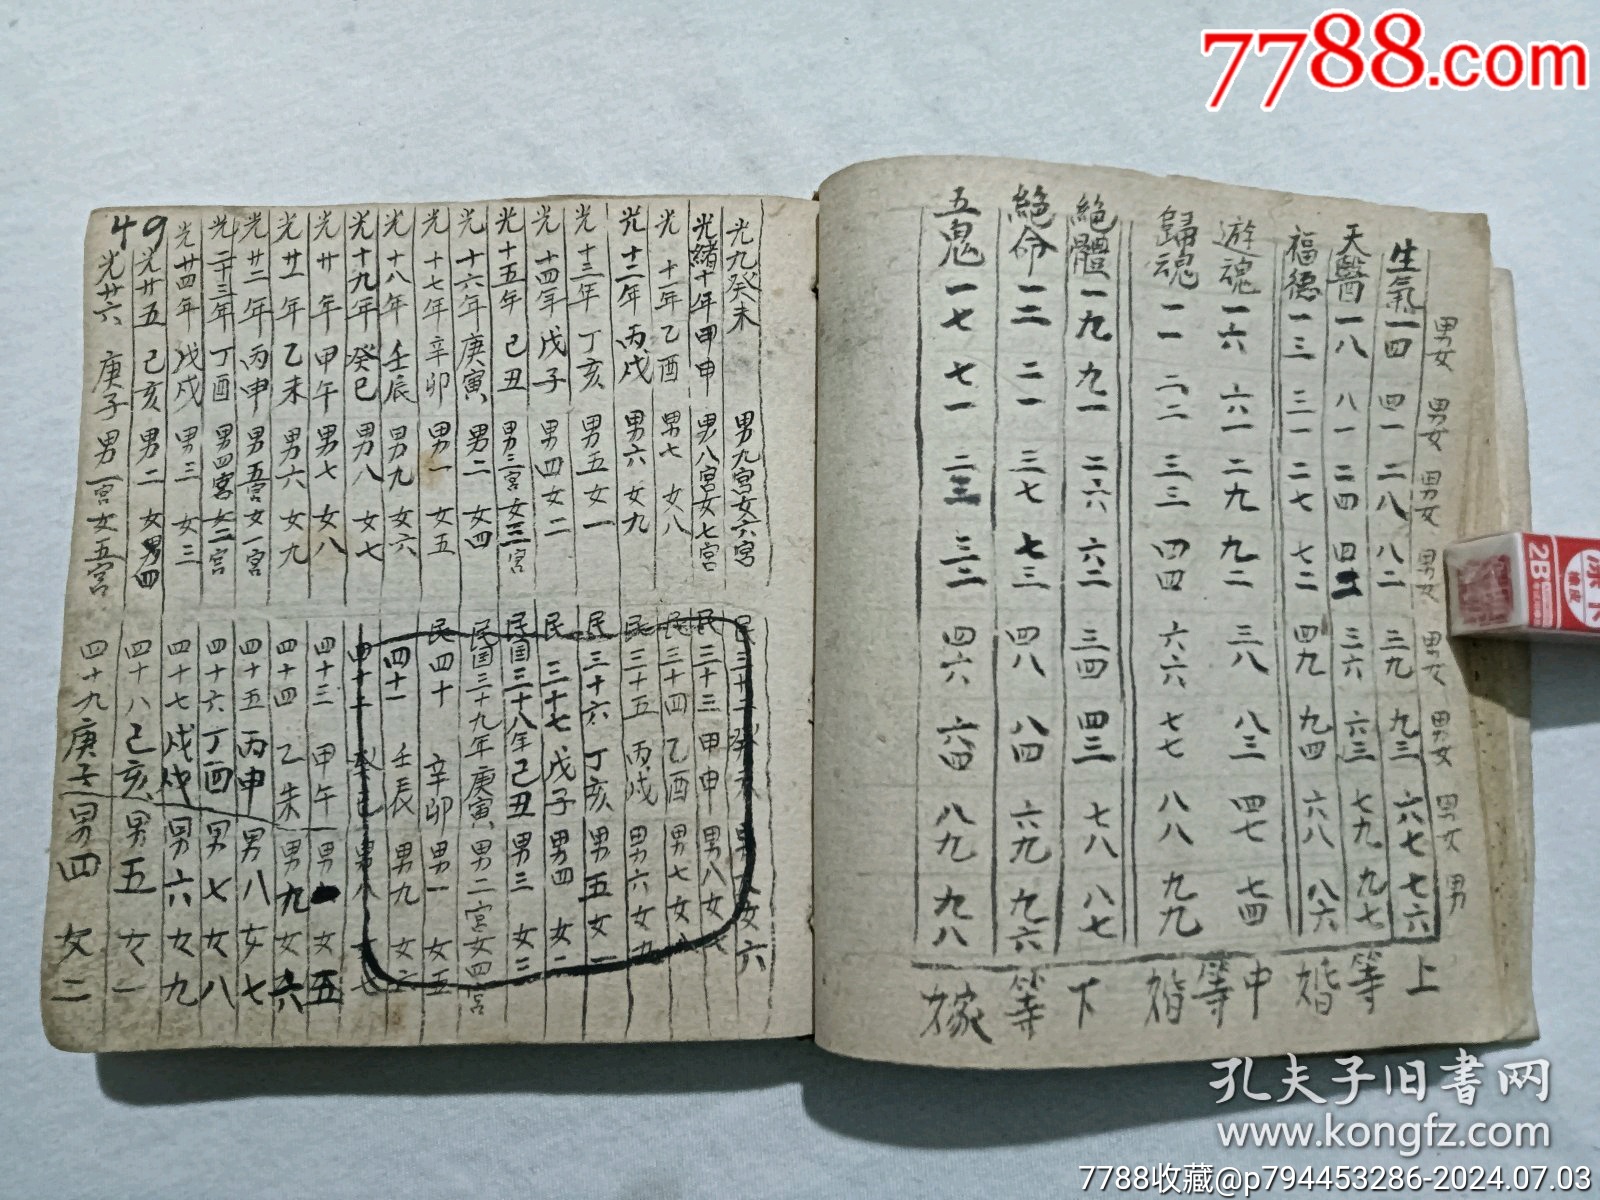 7788.com
男女 男女 男女 男女 男女 男女 男女 男
生氣 一四 四一 二八 八二 三九 九三 六七 七六
天醫 一八 八一 二四 四二 三六 六三 七九 九七
福德 一三 三一 二七 七二 四九 九四 六八 八六
遊魂 一六 六一 二九 九二 三八 八三 四七 七四
歸魂 一一 二二 三三 四四 六六 七七 八八 九九
絕體 一九 九一 二六 六二 三四 四三 七八 八七
絕命 一二 二一 三七 七三 四八 八四 六九 九六
五鬼 一七 七一 二三 三二 四六 六四 八九 九八
上等婚
中等婚
下等嫁
光九癸未 男九宮女六宮
光緒十年甲申 男八宮女七宮
光十一年乙酉 男七 女八
光十二年丙戌 男六 女九
光十三年丁亥 男五 女一
光十四年戊子 男四 女二
光十五年己丑 男三宮女三宮
光十六年庚寅 男二 女四
光十七年辛卯 男一 女五
光十八年壬辰 男九 女六
光十九年癸巳 男八 女七
光廿年甲午 男七 女八
光廿一年乙未 男六 女九
光廿二年丙申 男五宮女一宮
光二十三年丁酉 男四宮女二宮
光廿四年戊戌 男三 女三
光廿五己亥 男二 女四
光廿六庚子 男一宮女五宮
49
民三十二癸未 男 女六
民三十三甲申 男八女七
民三十四乙酉 男七女八
民三十五丙戌 男六女九
民三十六丁亥 男五女一
民三十七戊子 男四 女二
民国三十八年己丑 男三 女三
民国三十九年庚寅 男二宮女四宮
民四十 辛卯 男一 女五
四十一 壬辰 男九 女六
四十二 癸巳 男八 女七
四十三 甲午 男一 女五
四十四 乙未 男九 女六
四十五 丙申 男八 女七
四十六丁酉 男七 女八
四十七戊戌 男六 女九
四十八己亥 男五 女一
四十九庚子 男四 女二
2B
橡皮
孔夫子旧書网
www.kongfz.com
7788收藏@p794453286-2024.07.03